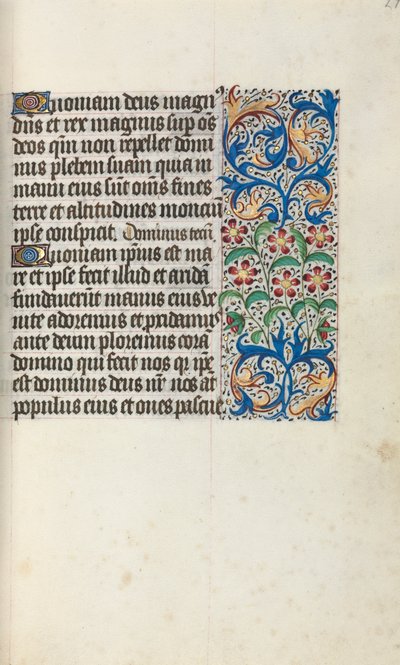 Quoniam deus magn9
dñs et rex magnus sup oṡ
deos qm̃ non repellet domi
nus plebem suam quia in
manu eius sūt om̃s fines
terre et altitudines monciū
ipse conspicit. Dominus tecū.
Quoniam ip̃ius est ma
re et ipse fecit illud et aridā
fundauerūt manus eius ve
nite adoremus et procidamus
ante deum ploremus corā
domino qui fecit nos qr ip̃e
est dominus deus nr̃ nos aūt
populus eius et oues pascue